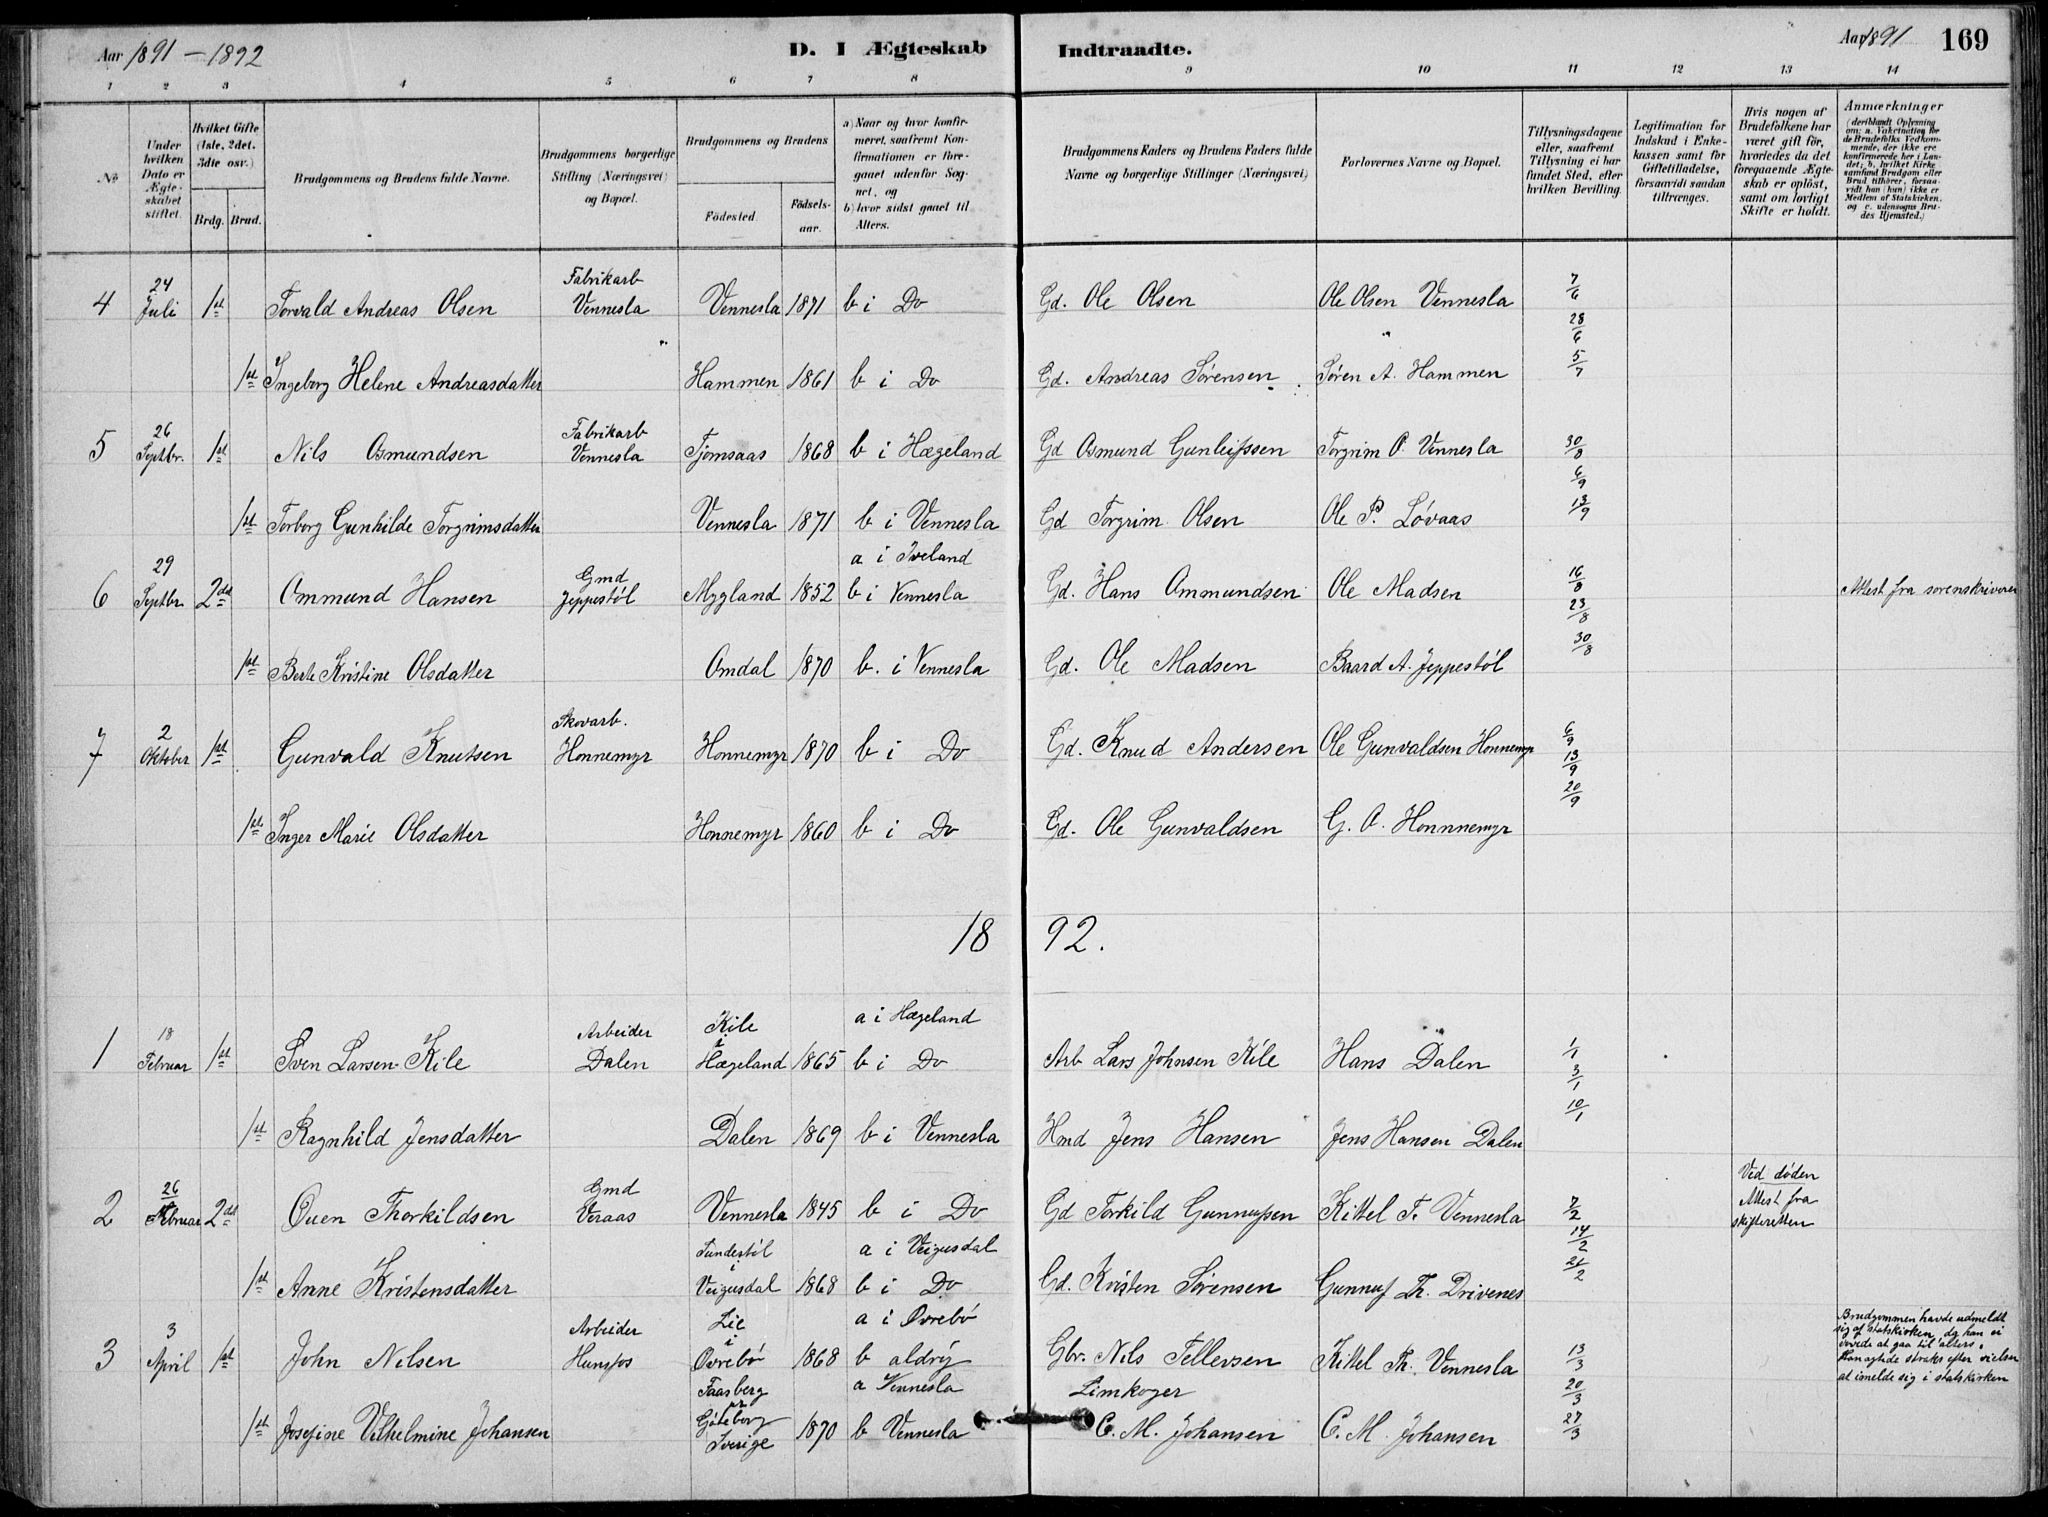 Aar 1891 – 1892 D. I Ægteskab Indtraadte. Aar 1891 169
1 2 3 4 5 6 7 8 9 10 11 12 13 14
No
Under hvilken Dato er Ægteskabet stiftet.
Hvilket Gifte (1ste, 2det, 3die osv.)
Brdg. Brud.
Brudgommens og Brudens fulde Navne.
Brudgommens borgerlige Stilling (Næringsvei) og Bopæl.
Brudgommens og Brudens
Födested. Födsels-aar.
a) Naar og hvor konfirmeret, saafremt Konfirmationen er foregaaet udenfor Sognet, og
b) hvor sidst gaaet til Alters.
Brudgommens Faders og Brudens Faders fulde Navne og borgerlige Stillinger (Næringsvei)
Forlovernes Navne og Bopæl.
Tillysningsdagene eller, saafremt Tillysning ei har fundet Sted, efter hvilken Bevilling.
Legitimation for Indskud i Enkekassen samt for Giftetilladelse, forsaavidt saadan tiltrænges.
Hvis nogen af Brudefolkene har været gift för, hvorledes da det foregaaende Ægteskab er oplöst, samt om lovligt Skifte er holdt.
Anmærkninger (deriblandt Oplysning om: a. Vakcination for de Brudefolks Vedkommende, der ikke ere konfirmerede her i Landet; b. hvilket Kirkesamfund Brudgom eller Brud tilhörer, forsaavidt han (hun) ikke er Medlem af Statskirken, og c. udensogns Brudes Hjemsted.)
4 24 Juli 1ste Torvald Andreas Olsen Fabrikarb Vennesla Vennesla 1871 b i Do Gd. Ole Olsen Ole Olsen Vennesla 7/6 28/6
1ste Ingeborg Helene Andreasdatter Hammen 1861 b i Do Gd. Andreas Sörensen Sören A. Hammen 5/7
5 26 Septbr. 1ste Nils Osmundsen Fabrikarb Vennesla Tjomsaas 1868 b i Hægeland Gd Osmund Gunleifssen Torgrim O. Vennesla 30/8 6/9
1ste Torborg Gunhilde Torgrimsdatter Vennesla 1871 b i Vennesla Gd Torgrim Olsen Ole P. Lövaas 13/9
6 29 Septbr 2det Ommund Hansen Gmd Jeppestöl Mygland 1852 a i Iveland b i Vennesla Gd. Hans Ommundsen Ole Madsen 16/8 23/8 Attest fra sorenskriveren
1ste Berte Kristine Olsdatter Omdal 1870 b. i Vennesla Gd. Ole Madsen Baard A. Jeppestöl 30/8
7 2 Oktober 1ste Gunvald Knutsen Skovarb. Honnemyr Honnemyr 1870 b i Do Gd. Knud Andersen Ole Gunvaldsen Honnemyr 6/9 13/9
1ste Inger Marie Olsdatter Honnemyr 1860 b i Do Gd. Ole Gunvaldsen G. O. Honnnemyr 20/9
18 92.
1 18 Februar 1ste Sven Larsen Kile Arbeider Dalen Kile i Hægeland 1865 a i Hægeland b i Do Arb Lars Johnsen Kile Hans Dalen 1/1 3/1
1ste Ragnhild Jensdatter Dalen 1869 b i Vennesla Hmd Jens Hansen Jens Hansen Dalen 10/1
2 26 Februar 2det Ouen Thorkildsen Gmd Veraas Vennesla 1845 b i Do Gd Torkild Gunnufsen Kittel T. Vennesla 7/2 14/2 Ved döden Attest fra skifteretten
1ste Anne Kristensdatter Sundestöl i Veigusdal 1868 a i Veigusdal b i Do Gd. Kristen Sörensen Gunnuf Th. Drivenes 21/2
3 3 April 1ste John Nilsen Arbeider Hunsfos Lie i Övrebö 1868 a i Övrebö b aldrig Gbr. Nils Tellevsen Kittel Th. Vennesla 13/3 20/3 Brudgommen havde udmeldt sig af statskirken, da han ei vovede at gaa til alters. Han agtede straks efter vielsen at imelde sig i statskirken
1ste Josefine Vilhelmine Johansen Faarberg pr Göteborg Sverige 1870 a Vennesla b Vennesla Limkoger C. M. Johansen C. M. Johansen 27/3